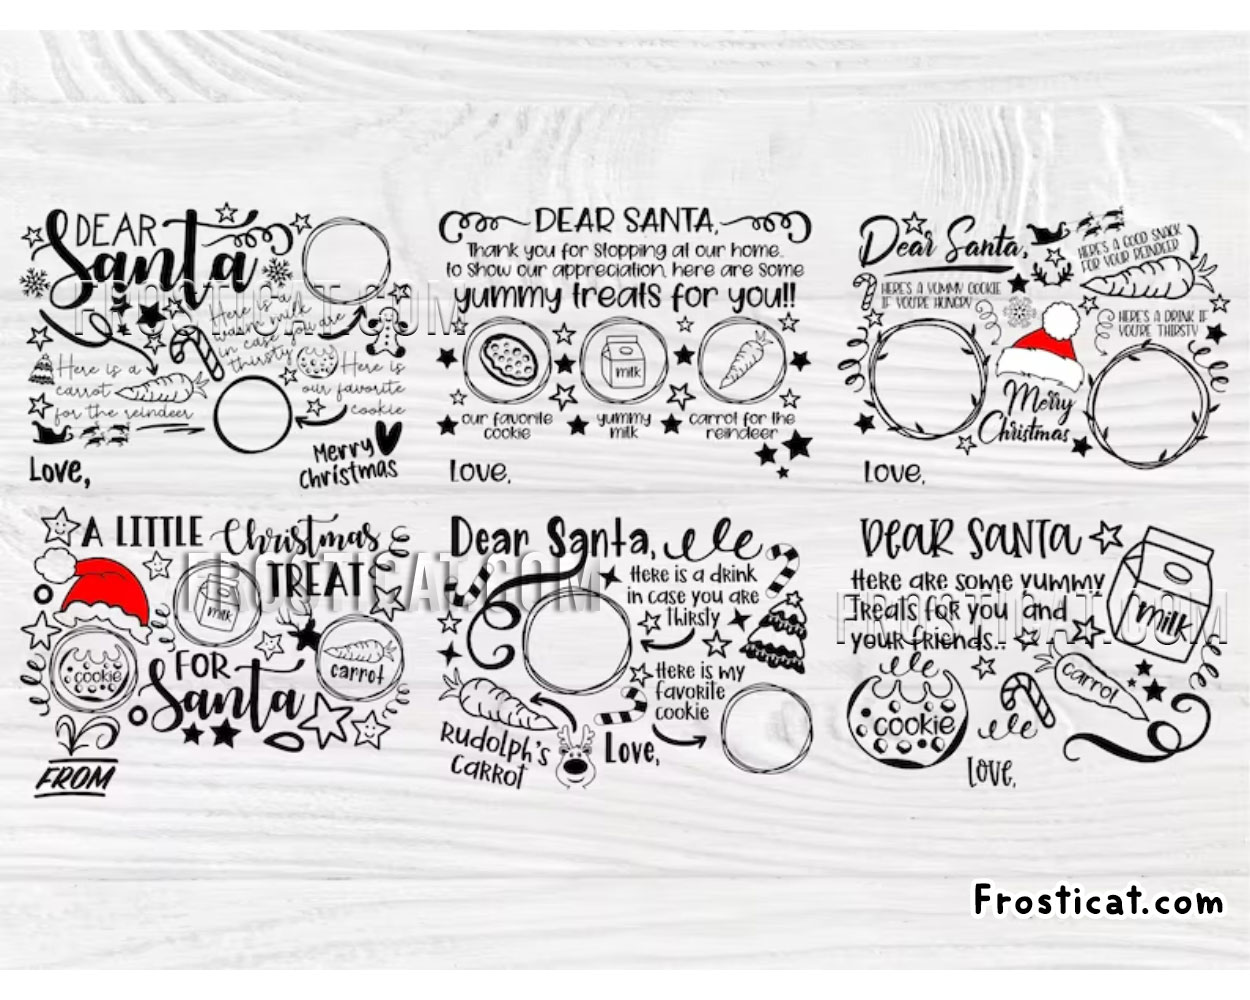 DEAR
Santa
Here is a
warm milk
in case you are
thirsty
Here is a
carrot
for the reindeer
Here is
our favorite
cookie
Merry
Christmas
Love,
DEAR SANTA,
Thank you for stopping at our home.
to show our appreciation, here are some
yummy treats for you!!
milk
our favorite
cookie
yummy
milk
carrot for the
reindeer
Love,
Dear Santa,
HERE'S A GOOD SNACK
FOR YOUR REINDEER
HERE'S A YUMMY COOKIE
IF YOU'RE HUNGRY
HERE'S A DRINK IF
YOU'RE THIRSTY
Merry
Christmas
Love,
FROSTICAT.COM
A LITTLE Christmas
TREAT
milk
cookie
FOR
carrot
Santa
FROM
Dear Santa,
Here is a drink
in case you are
thirsty
Here is my
favorite
cookie
Rudolph's
carrot
Love,
FROSTICAT.COM
DEAR SANTA
Here are some yummy
treats for you and
your friends..
milk
carrot
cookie
Love,
FROSTICAT.COM
Frosticat.com